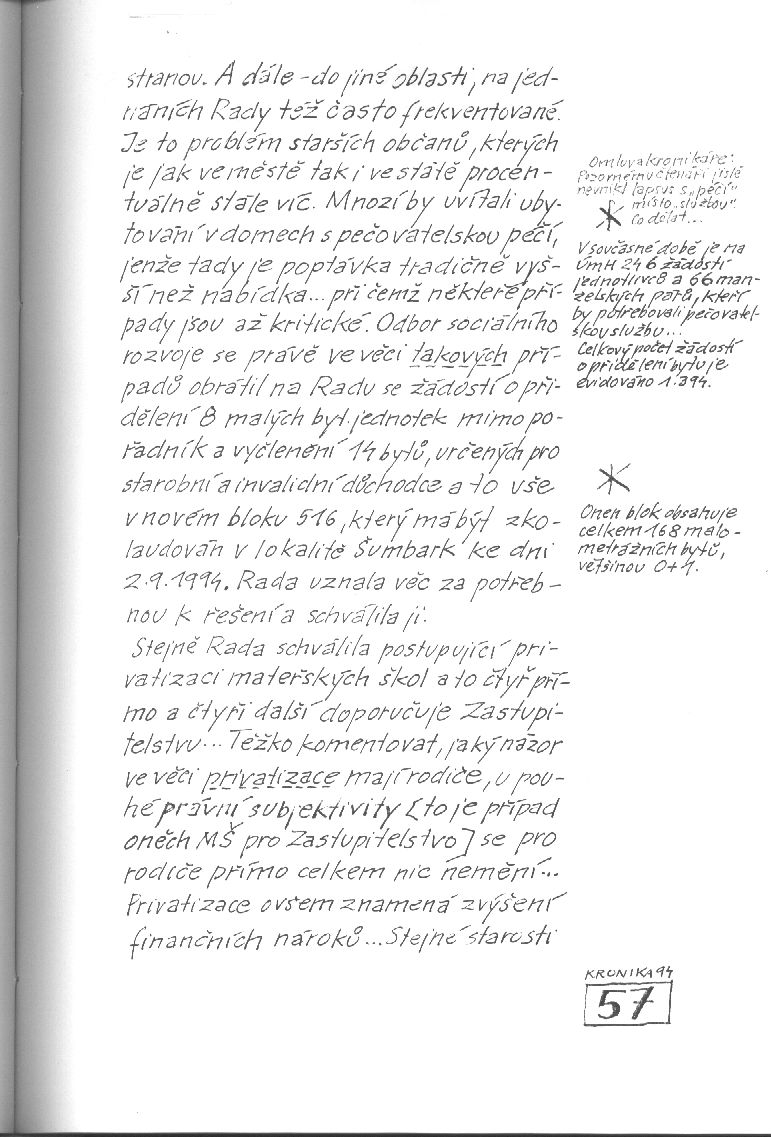 stranou. A dále - do jiné oblasti, na jed-
náních Rady též často frekventované.
Je to problém starších občanů, kterých
je jak ve městě tak i ve státě procen-
tuálně stále víc. Mnozí by uvítali uby-
tování v domech s pečovatelskou péčí,
jenže tady je poptávka tradičně vyš-
ší než nabídka... při čemž některé pří-
pady jsou až kritické. Odbor sociálního
rozvoje se právě ve věci takových pří-
padů obrátil na Radu se žádostí o při-
dělení 8 malých byt. jednotek mimo po-
řadník a vyčlenění 14 bytů, určených pro
starobní a invalidní důchodce a to vše
v novém bloku 516, který má být zko-
laudován v lokalitě Šumbark ke dni
2.9.1994. Rada uznala věc za potřeb-
nou k řešení a schválila ji.
Stejně Rada schválila postupující pri-
vatizaci mateřských škol a to čtyř pří-
mo a čtyři další doporučuje Zastupi-
telstvu... Těžko komentovat, jaký názor
ve věci privatizace mají rodiče, u pou-
hé právní subjektivity [to je případ
oněch MŠ pro Zastupitelstvo] se pro
rodiče přímo celkem nic nemění...
Privatizace ovšem znamená zvýšení
finančních nároků... Stejné starosti
Omluva kronikáře:
Pozornému čtenáři jistě
nevnikl lapsus s „péčí"
místo „službou".
Co dělat...
V současné době je na
ÚmH 246 žádostí
jednotlivců a 66 man-
želských párů, kteří
by potřebovali pečovatel-
skou službu...
Celkový počet žádostí
o přidělení bytu je
evidováno 1.394.
Onen blok obsahuje
celkem 168 malo-
metrážních bytů,
většinou 0+1.
KRONIKA 94
57